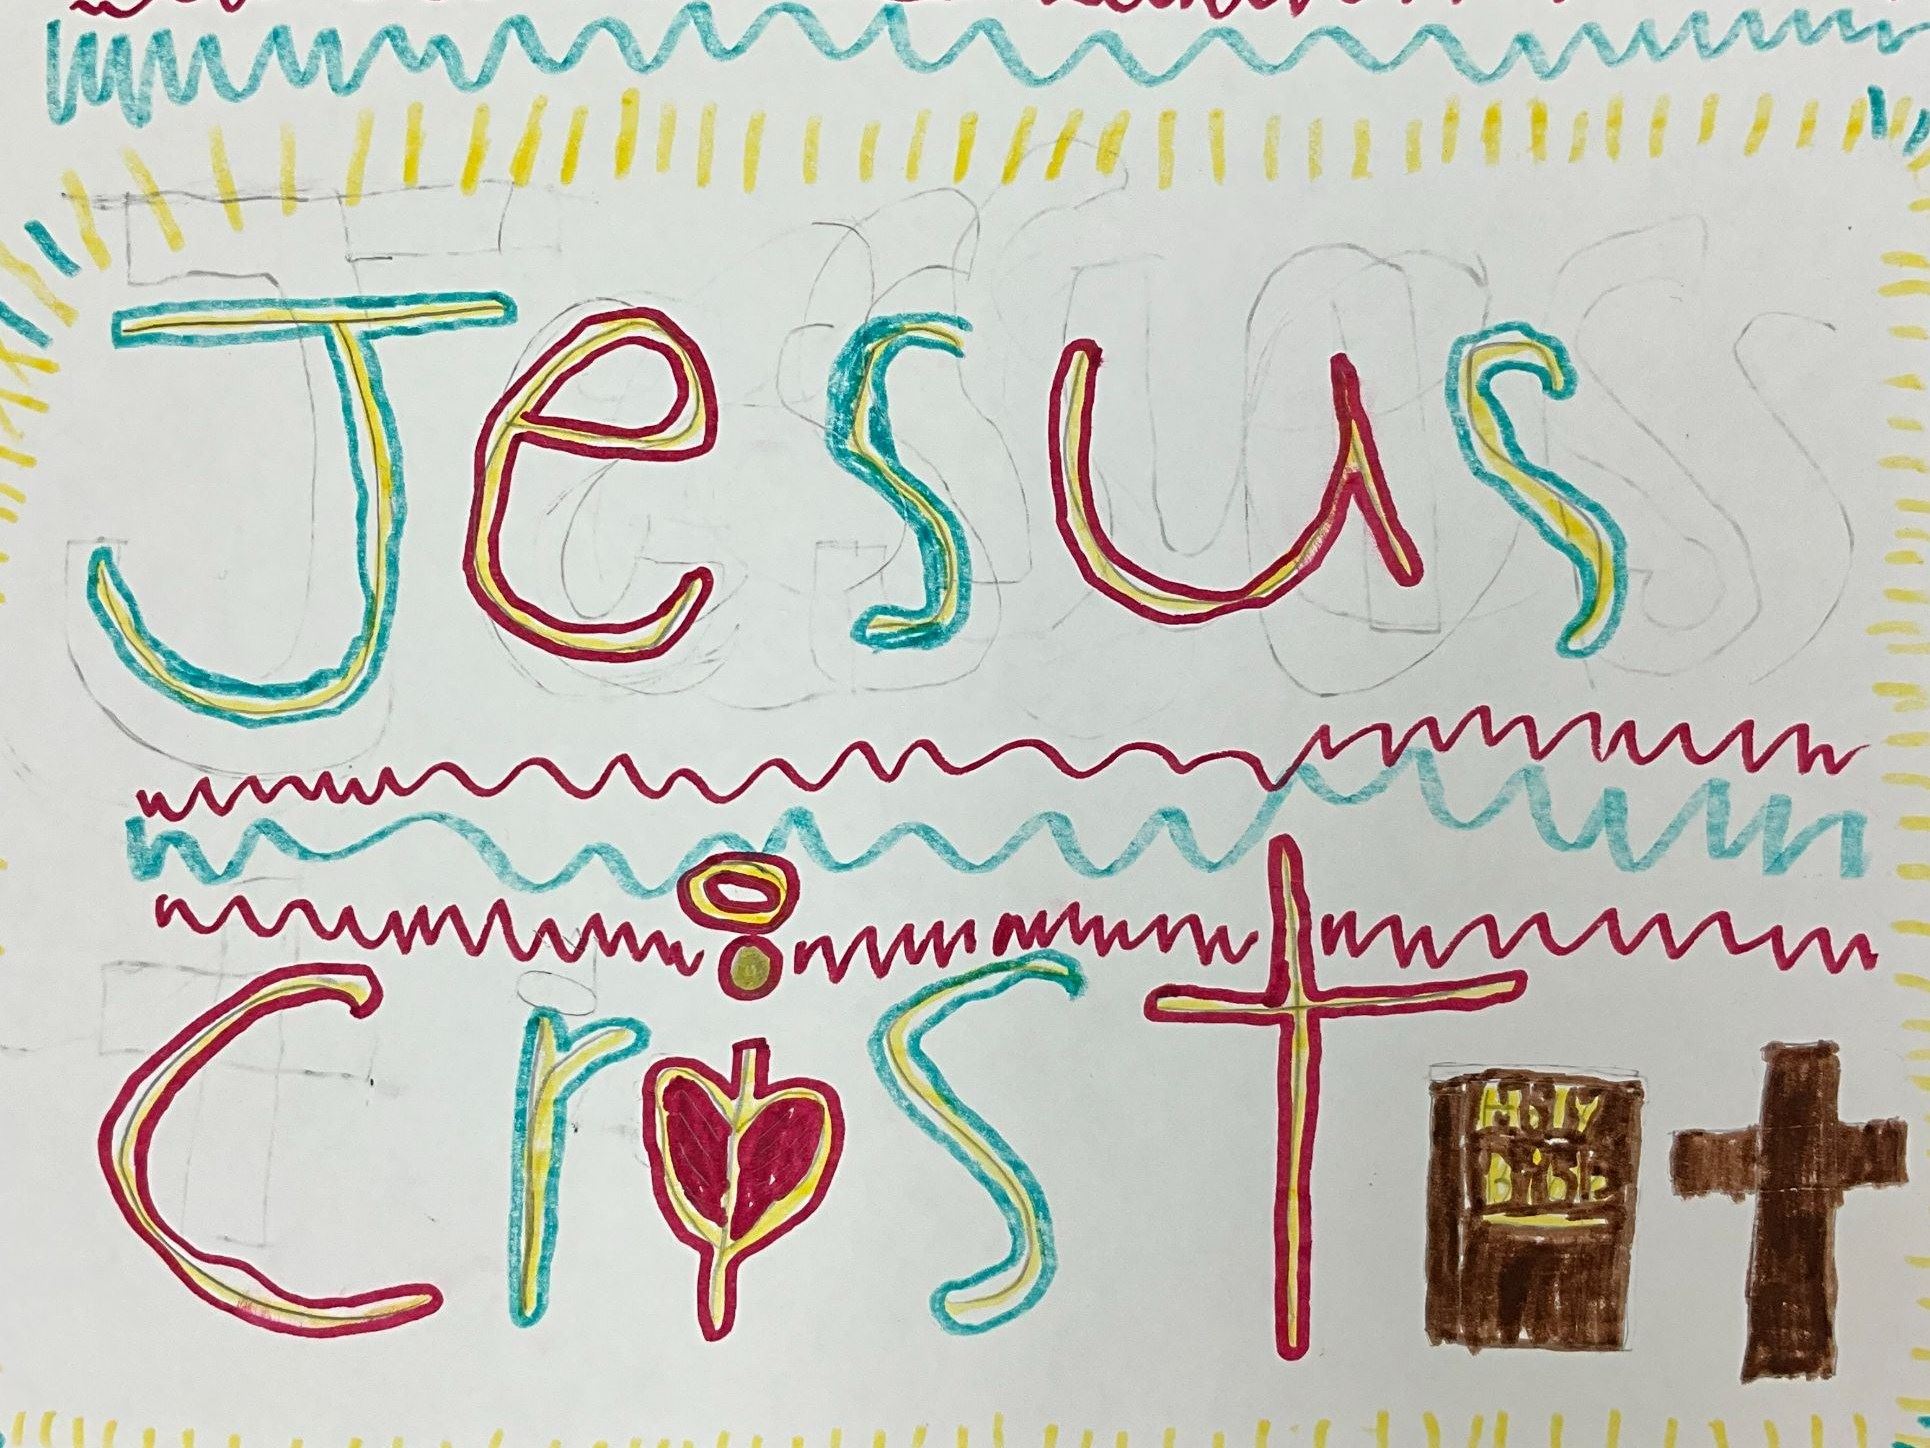 Jesus
Crist
Holy
Bible